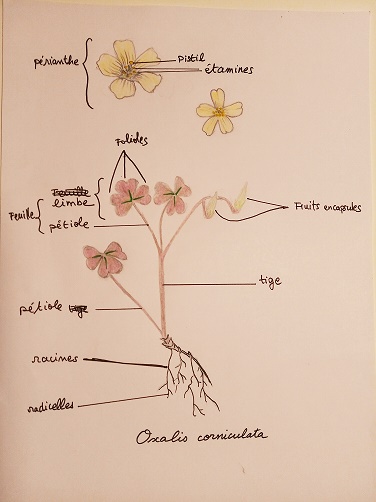 périanthe
pistil
étamines
Folioles
Feuille
limbe
pétiole
Fruits en capsules
tige
pétiole
racines
radicelles
Oxalis corniculata